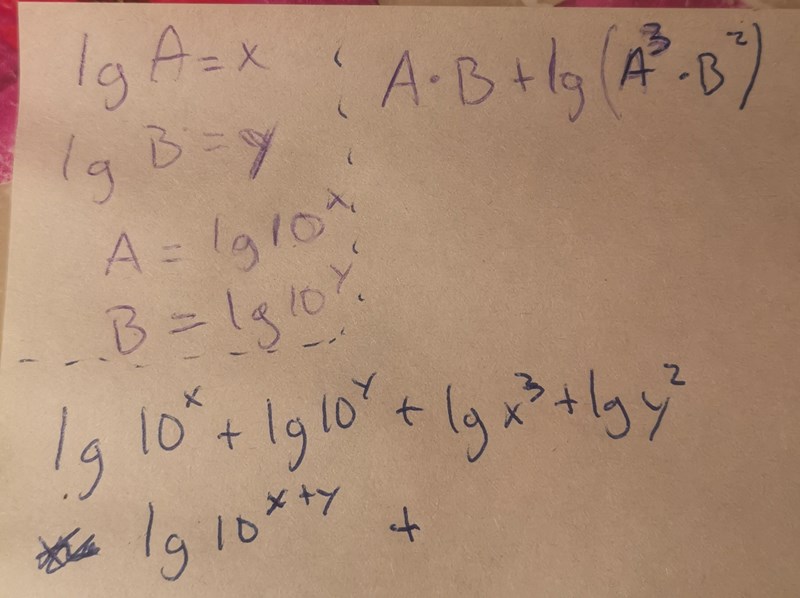 lg A = x
lg B = y
A = lg 10^x
B = lg 10^y
A · B + lg (A^3 · B^2)
lg 10^x + lg 10^y + lg x^3 + lg y^2
lg 10^x+y +